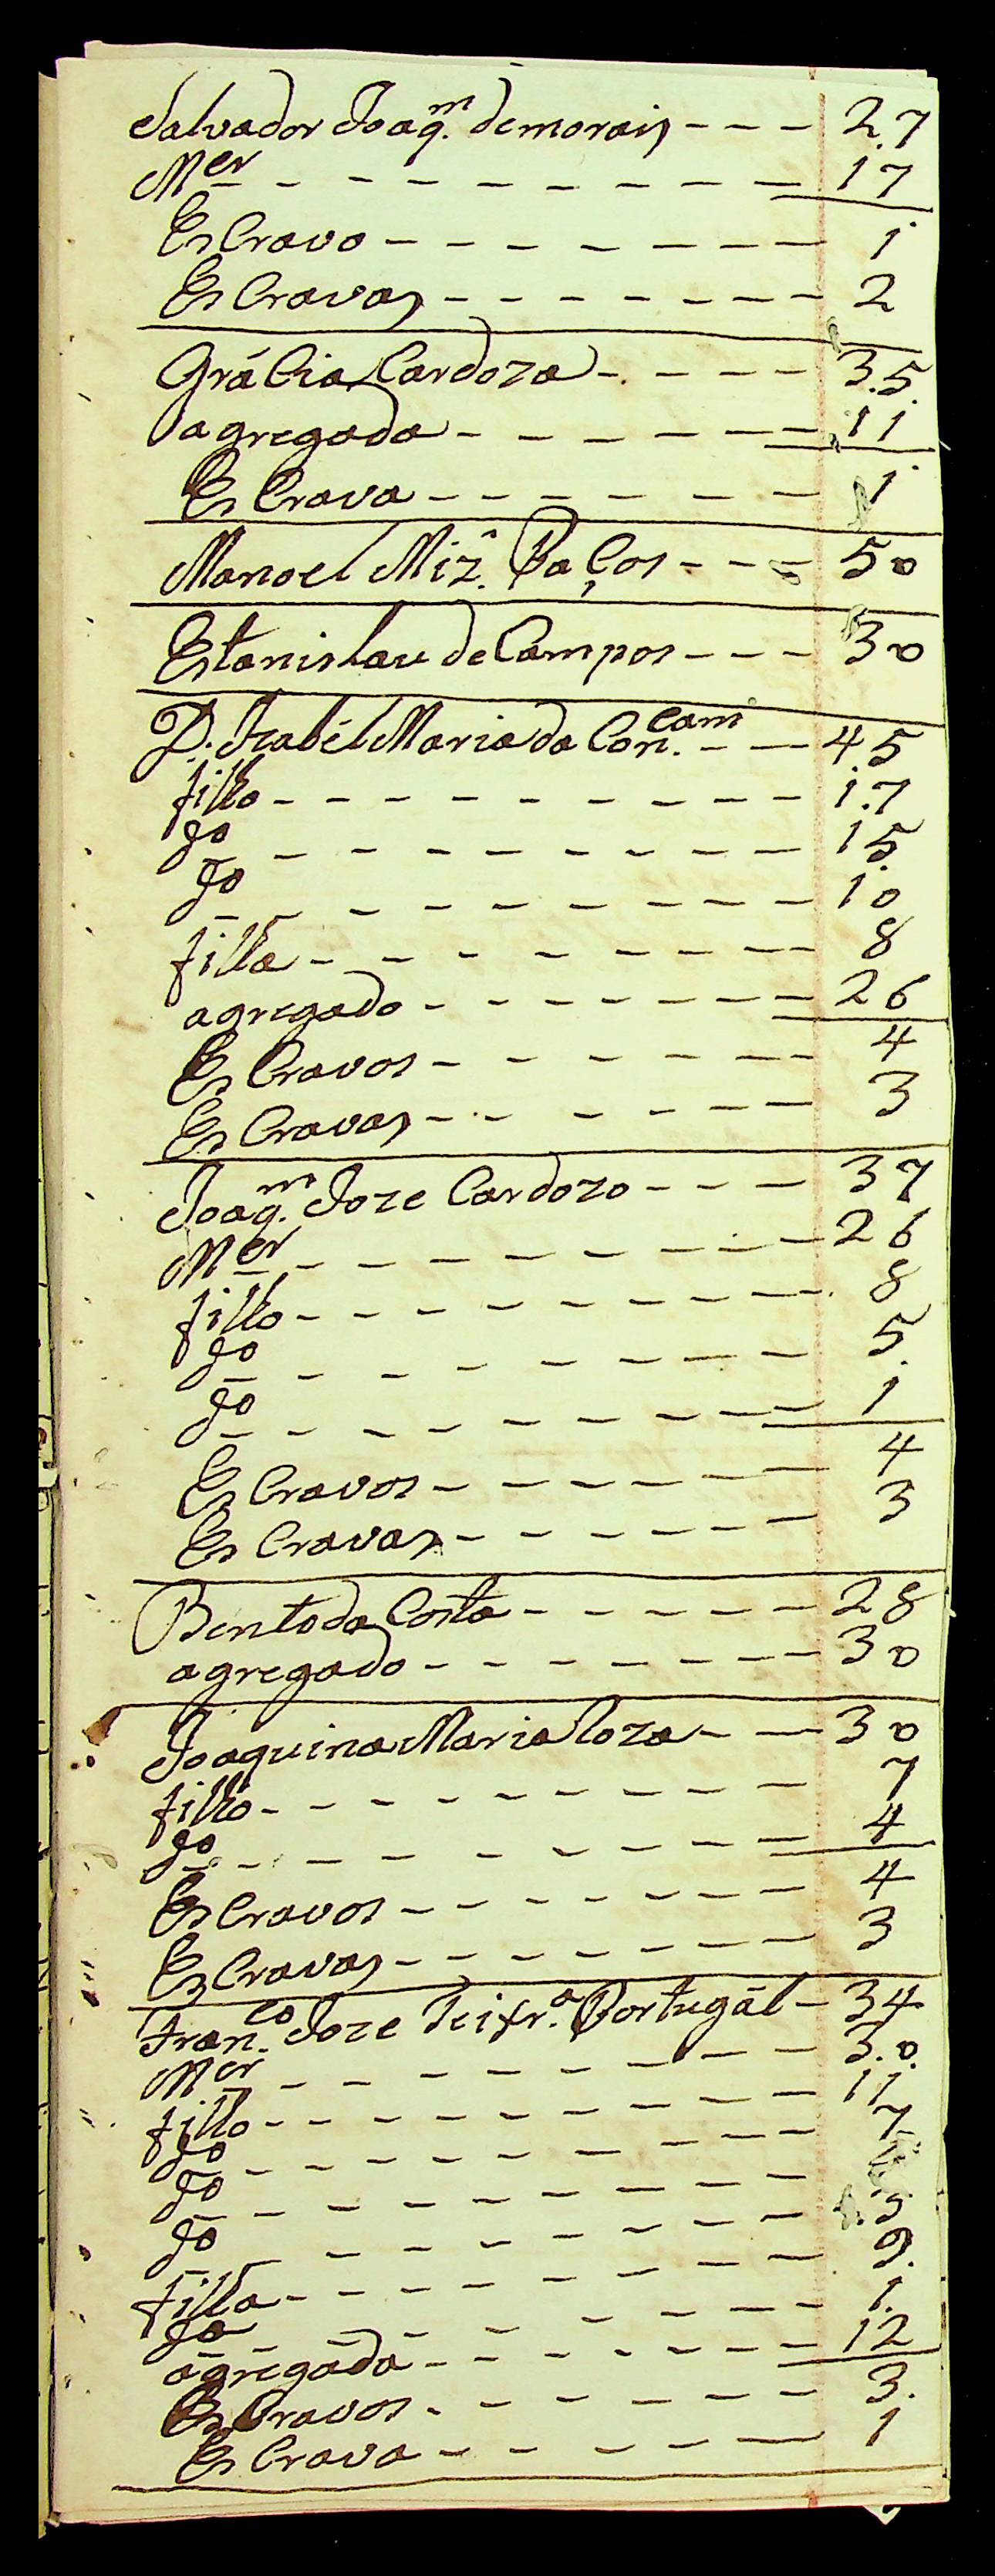 Salvador Joaq.m de morais - - - 27
Mer - - - - - - - - - 17
EsCravo - - - - - - - 1
EsCravas - - - - - - - 2
GráCia Cardoza - - - - 35
agregada - - - - - - 11
EsCrava - - - - - - 1
Manoel Miz̃. BaÇos - - - 50
Estanislau de Campos - - - 30
D. Izabél Maria da Con.cam - - 45
filho - - - - - - - - - 17
do - - - - - - - - - 15
do - - - - - - - - 10
filha - - - - - - - - 8
agregado - - - - - - - 26
EsCravos - - - - - - 4
EsCravas - - - - - - 3
Joaq.m Joze Cardozo - - - 37
Mer - - - - - - - - - 26
filho - - - - - - - - - 8
do - - - - - - - - 5
do - - - - - - - - 1
EsCravos - - - - - - 4
EsCravas - - - - - - 3
Bento da Costa - - - - - 28
agregado - - - - - - - 30
Joaquina Maria Roza - - 30
filho - - - - - - - - - 7
do - - - - - - - - - 4
EsCravos - - - - - - - 4
EsCravas - - - - - - - 3
Fran.co Joze Teixr.a Portugál - 34
Mer - - - - - - - - - 30
filho - - - - - - - - - 11
do - - - - - - - - - 7
do - - - - - - - - -
do - - - - - - - - 3
filha - - - - - - - - - 9
da - - - - - - - 1
agregada - - - - - - - 12
EsCravos - - - - - - - 3
EsCrava - - - - - 1